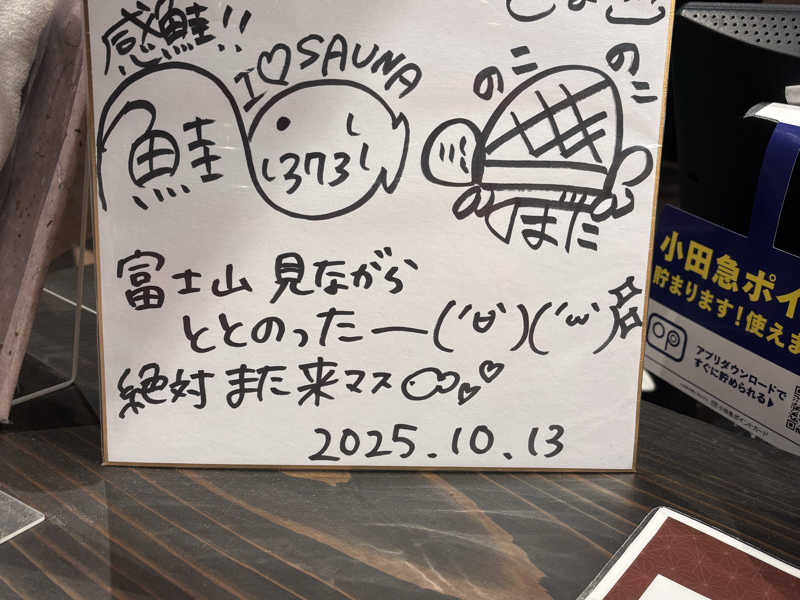 感鮭!!
I♡SAUNA
鮭
3731
のこ
のこ
また
富士山 見ながら
ととのったー(´∀`)(´ω`)
絶対 また 来マス
2025.10.13
小田急ポイ
貯まります!使えま
OP
アプリダウンロードで
すぐに貯められる